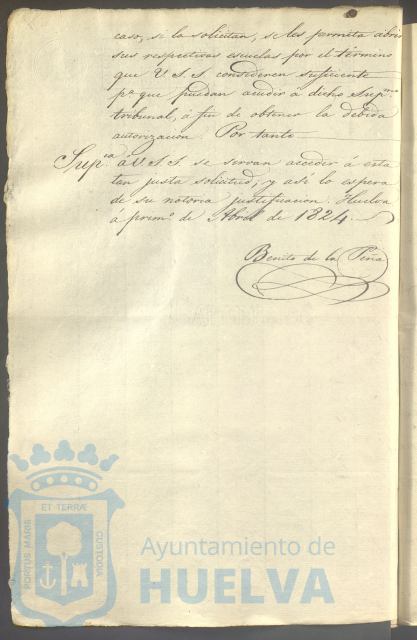 caso, se la solicitan, se les permita abrir
sus respectivas escuelas por el término
que V. S. S. consideren suficiente
pª que puedan acudir à dicho Supmo
tribunal, à fin de obtener la debida
autorización. Por tanto
Suppca à V. S S. se sirvan acceder à esta
tan justa solicitud, y asi lo espera
de su notoria justificacion. Huelva
à primº de Abril de 1824.
Benito de la Peña
PORTUS MARIS
ET TERRÆ
CUSTODIA
Ayuntamiento de
HUELVA